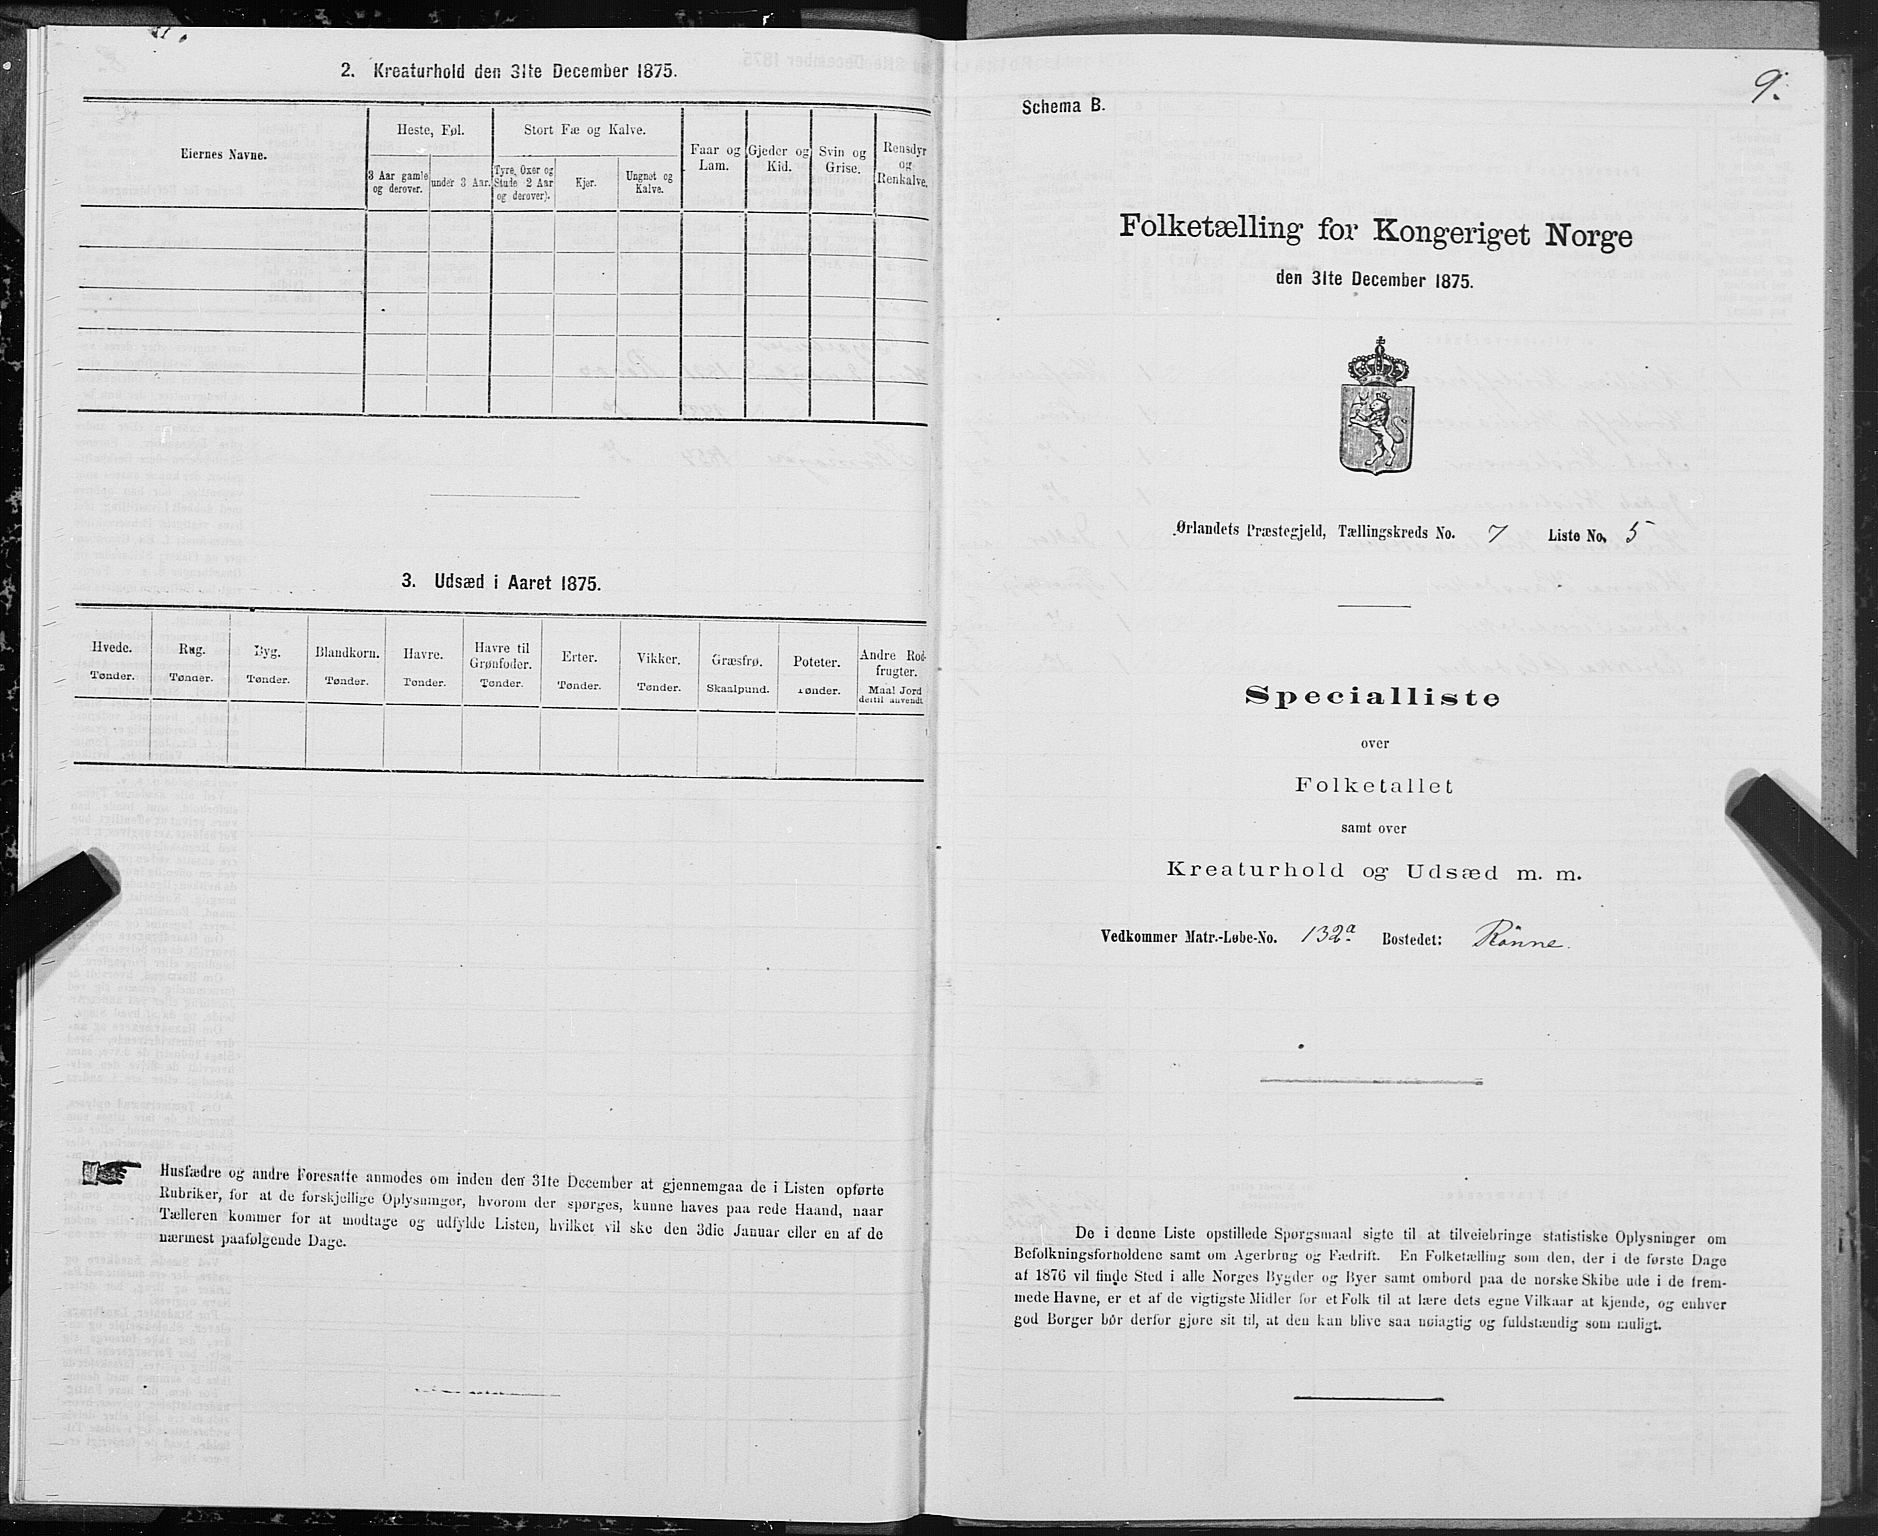 2. Kreaturhold den 31te December 1875.
Eiernes Navne.
Heste, Føl.
Stort Fæ og Kalve.
Faar og
Lam.
Gjeder og
Kid.
Svin og
Grise.
Rensdyr
og
Renkalve.
3 Aar gamle
og derover.
under 3 Aar.
Tyre, Oxer og
Stude 2 Aar
og derover).
Kjør.
Ungnøt og
Kalve.
3. Udsæd i Aaret 1875.
Hvede.
Tønder.
Rug.
Tønder.
Byg.
Tønder.
Blandkorn.
Tønder.
Havre.
Tønder.
Havre til
Grønfoder.
Tønder.
Erter.
Tønder.
Vikker.
Tønder.
Græsfrø.
Skaalpund.
Poteter.
Tønder.
Andre Rod-
frugter.
Maal Jord
dertil anvendt
Husfædre og andre Foresatte anmodes om inden den 31te December at gjennemgaa de i Listen opførte
Rubriker, for at de forskjellige Oplysninger, hvorom der spørges, kunne haves paa rede Haand, naar
Tælleren kommer for at modtage og udfylde Listen, hvilket vil ske den 3die Januar eller en af de
nærmest paafølgende Dage.
9.
Schema B.
Folketælling for Kongeriget Norge
den 31te December 1875.
Ørlandets Præstegjeld, Tællingskreds No. 7 Liste No. 5
Specialliste
over
Folketallet
samt over
Kreaturhold og Udsæd m. m.
Vedkommer Matr.-Løbe-No. 132a. Bostedet: Rönne.
De i denne Liste opstillede Spørgsmaal sigte til at tilveiebringe statistiske Oplysninger om
Befolkningsforholdene samt om Agerbrug og Fædrift. En Folketælling som den, der i de første Dage
af 1876 vil finde Sted i alle Norges Bygder og Byer samt ombord paa de norske Skibe ude i de frem-
mede Havne, er et af de vigtigste Midler for et Folk til at lære dets egne Vilkaar at kjende, og enhver
god Borger bør derfor gjøre sit til, at den kan blive saa nøiagtig og fuldstændig som muligt.